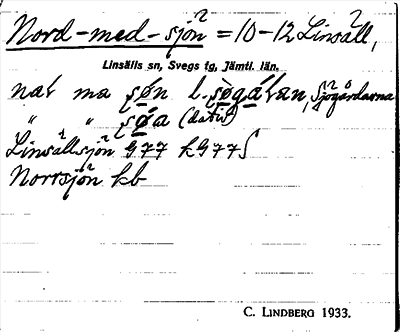 Nord-med-sjön = 10-12 Linsäll,
Linsälls sn, Svegs tg, Jämtl. län.
naɫ ma ʂøn l. søgaɫan, Sjögårdarna
" " søa (dativ)
Linsällsjön G77 kG77S
Norrsjön kb
C. LINDBERG 1933.